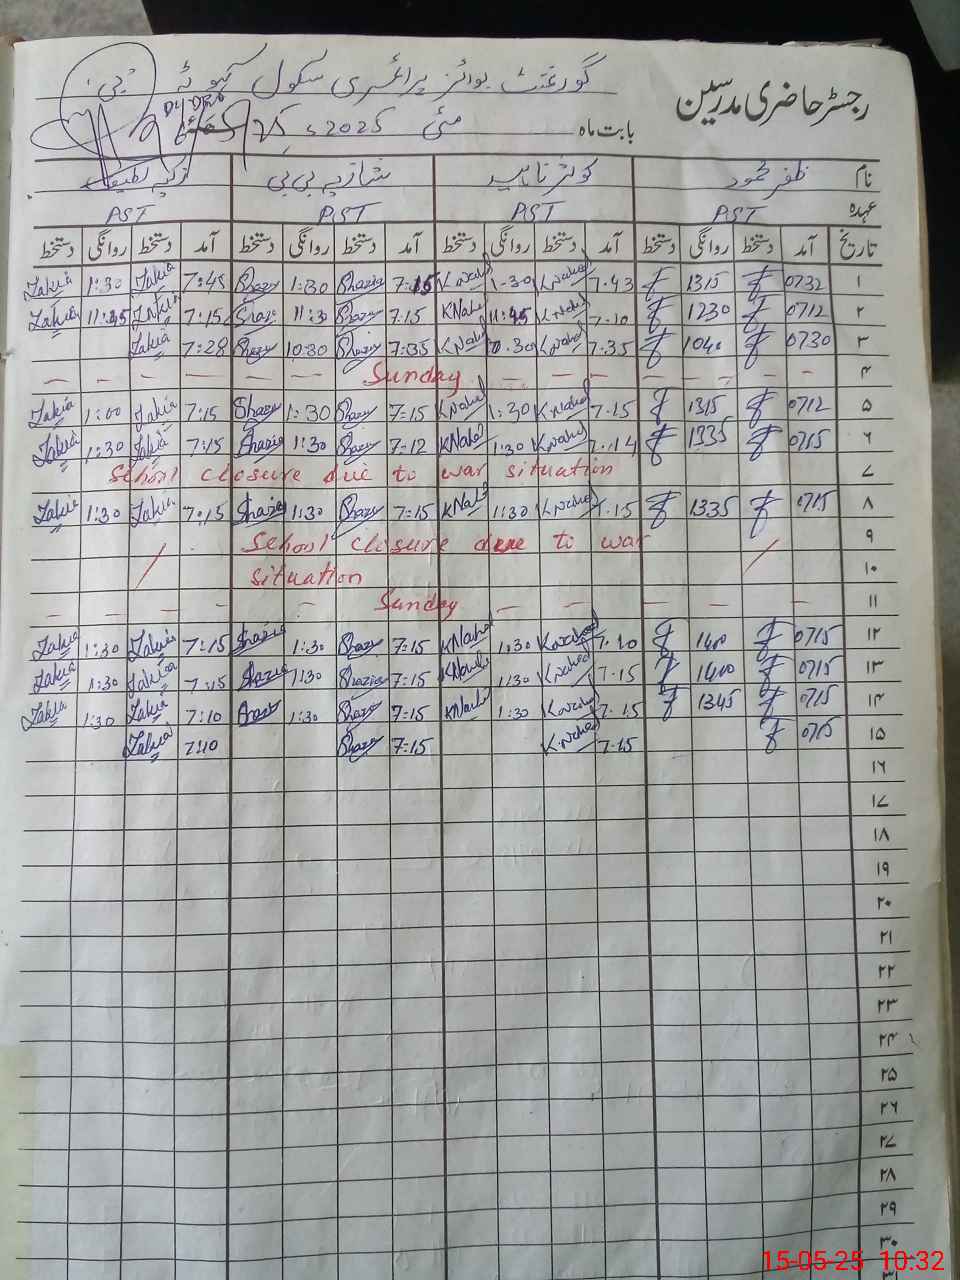 گورنمنٹ بوائز پرائمری سکول کہوٹہ
رجسٹر حاضری مدرسین
بابت ماہ مئی 2025ء
نام ظفر محمود کوثر ناہید شازیہ بی بی زکیہ لطیف
عہدہ PST PST PST PST
تاریخ آمد دستخط روانگی دستخط آمد دستخط روانگی دستخط آمد دستخط روانگی دستخط آمد دستخط روانگی دستخط
۱ 0732 1315 7.43 K.Nahed 1.30 K.Nahed 7:15 Shazia 1:30 Shazia 7:45 Zakia 1:30 Zakia
۲ 0712 1230 7.10 K.Nahed 11:45 K.Nahed 7:15 Shazia 11:30 Shazia 7:15 Zakia 11:45 Zakia
۳ 0730 1040 7.35 K.Nahed K.Nahed 7:35 Shazia 10:30 Shazia 7:28 Zakia
۴ Sunday
۵ 0712 1315 7.15 K.Nahed 1:30 K.Nahed 7:15 Shazia 1:30 Shazia 7:15 Zakia 1:00 Zakia
۶ 0715 1335 7.14 K.Nahed 1:30 K.Nahed 7:12 Shazia 1:30 Shazia 7:15 Zakia 1:30 Zakia
۷ School closure due to war situation
۸ 0715 1335 7.15 K.Nahed 1:30 K.Nahed 7:15 Shazia 1:30 Shazia 7:15 Zakia 1:30 Zakia
۹ School closure due to war
۱۰ situation
۱۱ Sunday
۱۲ 0715 1400 7.10 K.Nahed 1:30 K.Nahed 7:15 Shazia 1:30 Shazia 7:15 Zakia 1:30 Zakia
۱۳ 0715 1400 7.15 K.Nahed 1:30 K.Nahed 7:15 Shazia 1:30 Shazia 7:15 Zakia 1:30 Zakia
۱۴ 0715 1345 7.15 K.Nahed 1:30 K.Nahed 7:15 Shazia 1:30 Shazia 7:10 Zakia 1:30 Zakia
۱۵ 0715 7.15 K.Nahed 7:15 Shazia 7:10 Zakia
۱۶
۱۷
۱۸
۱۹
۲۰
۲۱
۲۲
۲۳
۲۴
۲۵
۲۶
۲۷
۲۸
۲۹
۳۰
15-05-25 10:32